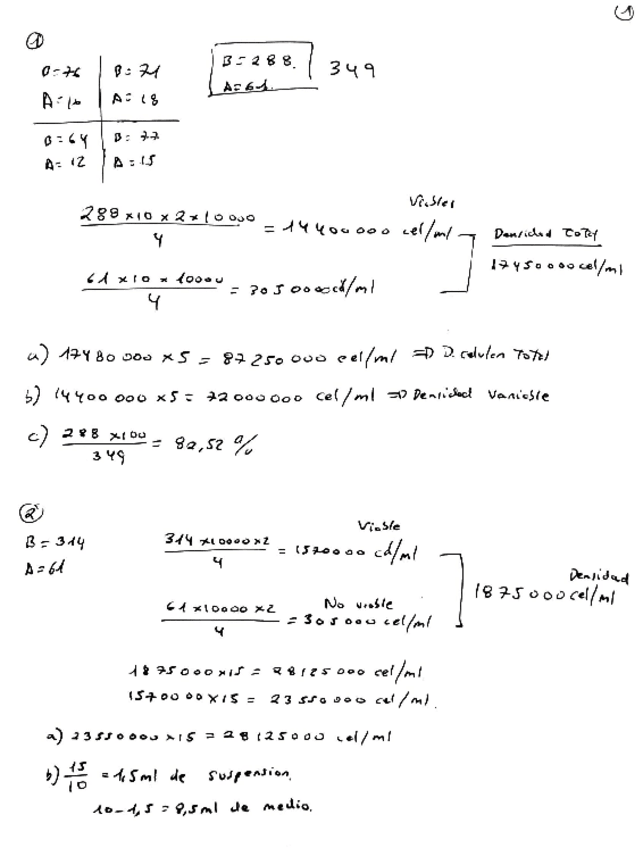 ①
①
B=76 B=71
A=16 A=18
B=64 B=77
A=12 A=15
B=288.
A=61.
349
Viables
288×10×2×10000 / 4 = 14400000 cel/ml
61×10×10000 / 4 = 3050000 cel/ml
Densidad Total
17450000 cel/ml
a) 17480000 ×5 = 87250000 cel/ml ⇒ D. celulen Total
b) 14400000 ×5 = 72000000 cel/ml ⇒ Densidad Variable
c) 288 ×100 / 349 = 82,52 %
②
B=314
A=61
Viable
314×10000×2 / 4 = 1570000 cel/ml
No viable
61×10000×2 / 4 = 305000 cel/ml
Densidad
1875000 cel/ml
1875000×15 = 28125000 cel/ml
1570000×15 = 23550000 cel/ml.
a) 23550000×15 = 28125000 cel/ml
b) 15 / 10 = 1,5ml de suspension.
10-1,5 = 8,5ml de medio.